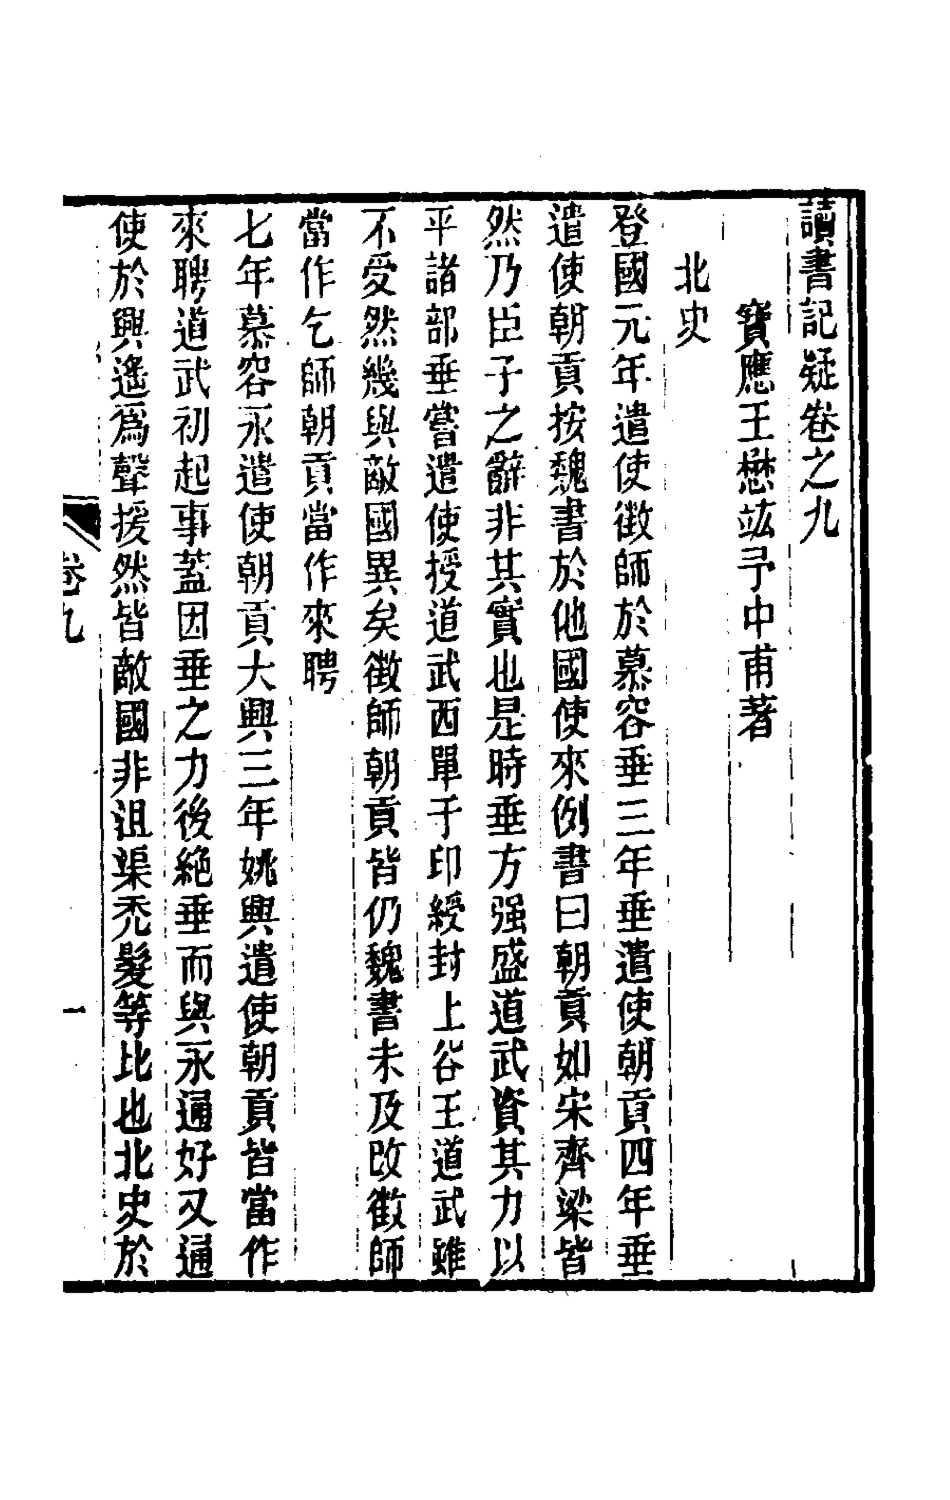 讀書記疑卷之九
寶應王懋竑予中甫著
北史
登國元年遣使徵師於慕容垂三年垂遣使朝貢四年垂
遣使朝貢按魏書於他國使來例書曰朝貢如宋齊梁皆
然乃臣子之辭非其實也是時垂方强盛道武資其力以
平諸部垂嘗遣使授道武西單于印綬封上谷王道武雖
不受然幾與敵國異矣徵師朝貢皆仍魏書未及改徵師
當作乞師朝貢當作來聘
七年慕容永遣使朝貢大興三年姚興遣使朝貢皆當作
來聘道武初起事蓋因垂之力後絕垂而與永通好又通
使於興遙爲聲援然皆敵國非沮渠禿髮等比也北史於
卷九
一